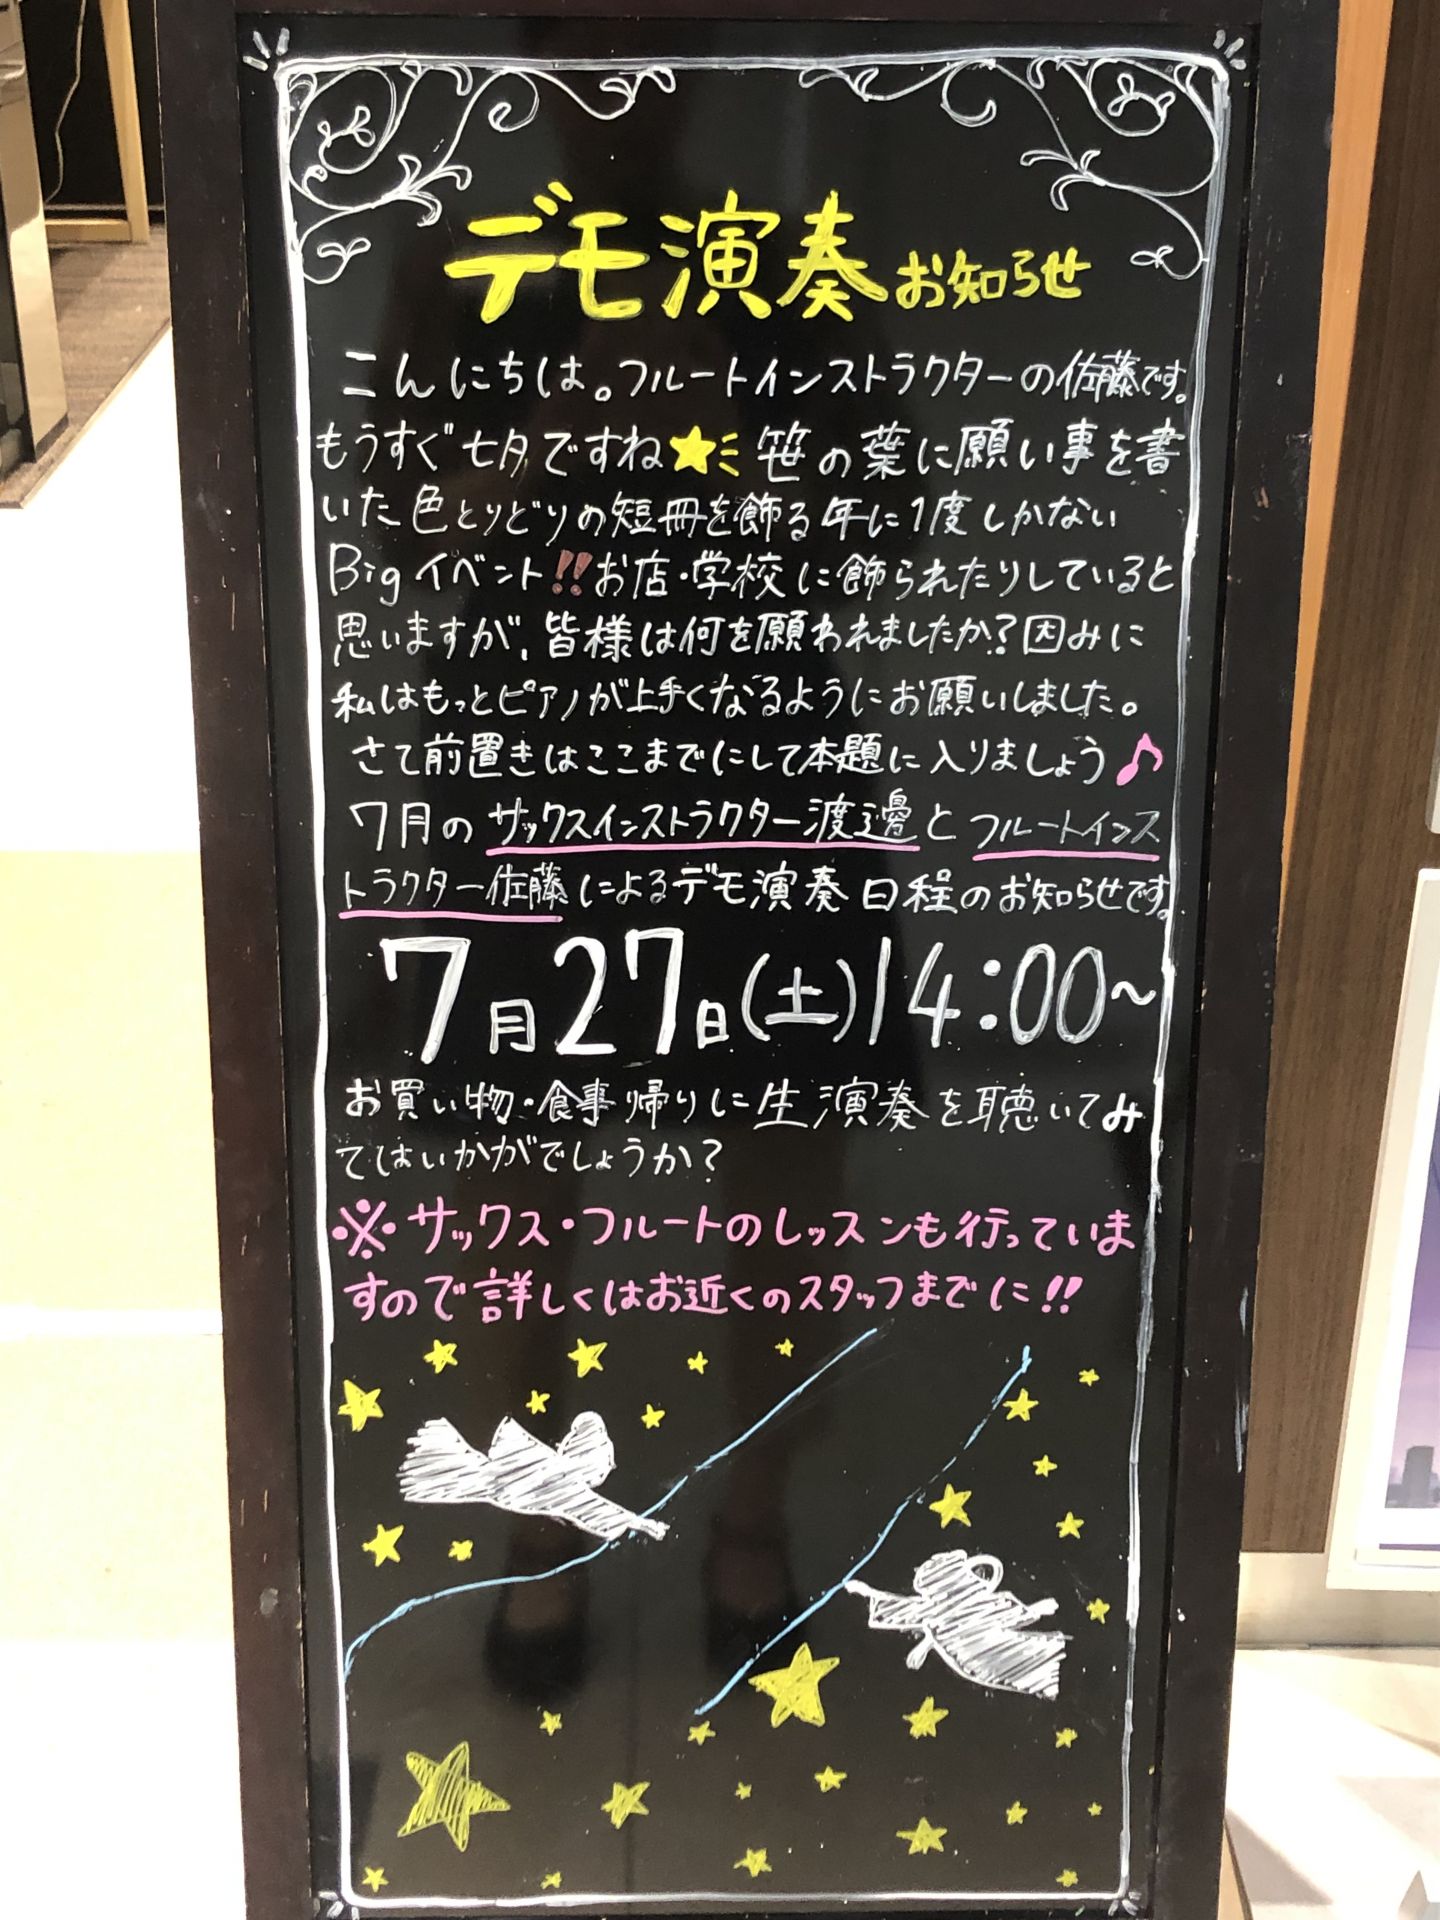 デモ演奏お知らせ
こんにちは。フルートインストラクターの佐藤です。
もうすぐ七夕ですね★笹の葉に願い事を書
いた色とりどりの短冊を飾る年に1度しかない
Bigイベント!!お店・学校に飾られたりしていると
思いますが、皆様は何を願われましたか?因みに
私はもっとピアノが上手くなるようにお願いしました。
さて前置きはここまでにして本題に入りましょう♪
7月のサックスインストラクター渡邊とフルートインス
トラクター佐藤によるデモ演奏日程のお知らせです。
7月27日(土)14:00~
お買い物・食事帰りに生演奏を聴いてみ
てはいかがでしょうか?
※サックス・フルートのレッスンも行っていま
すので詳しくはお近くのスタッフまでに!!